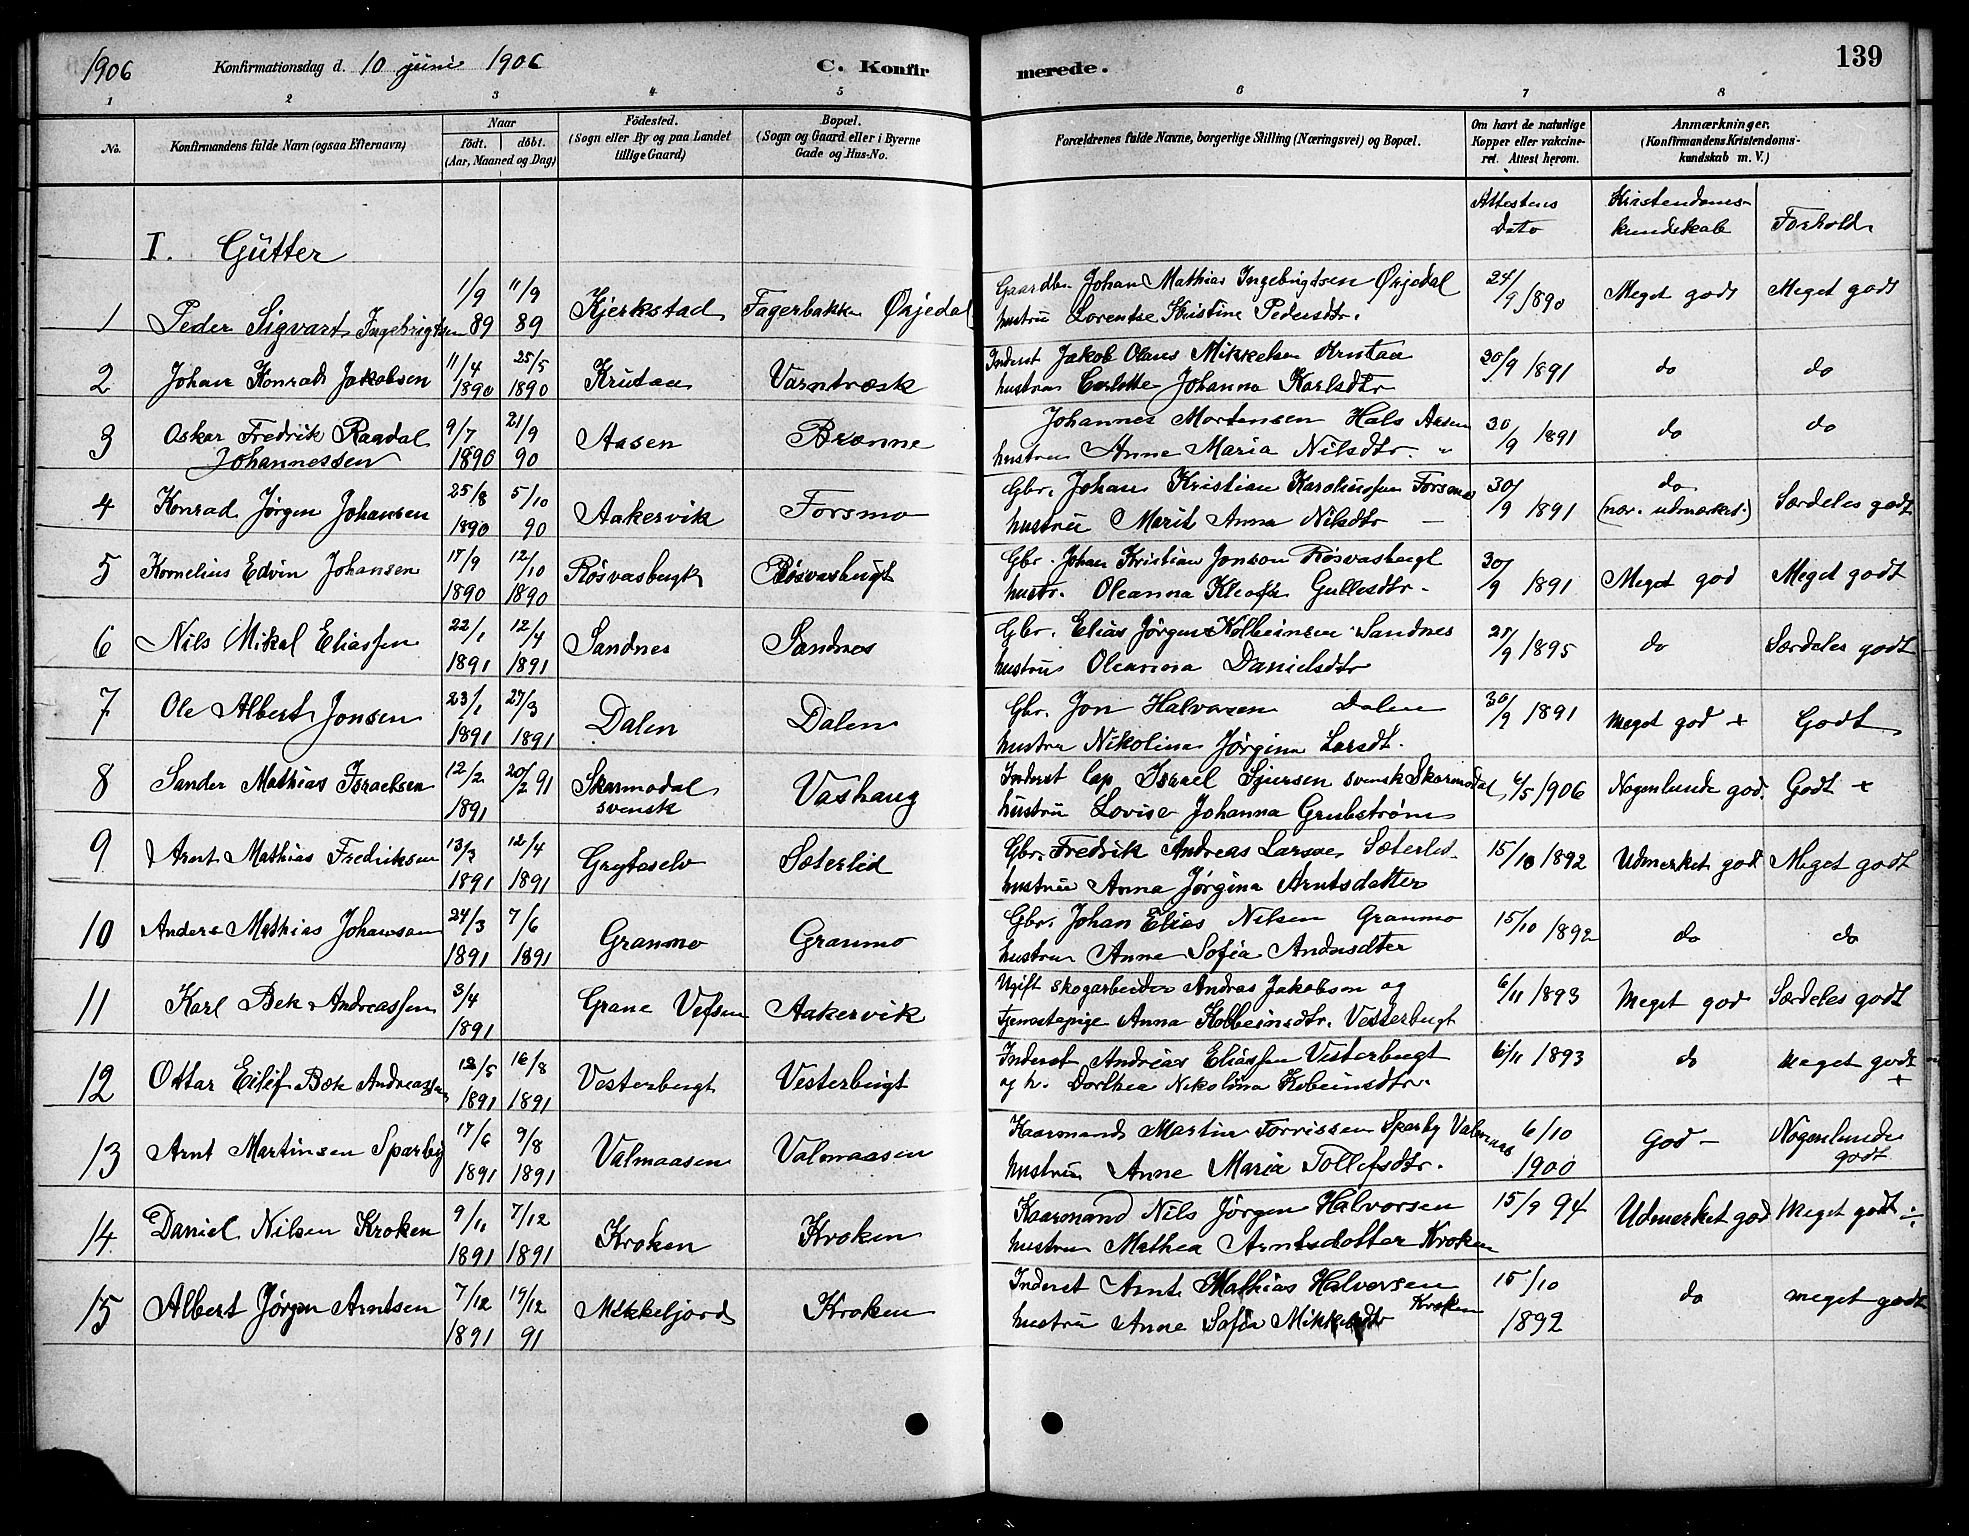 1906 Konfirmationsdag d. 10 juni 1906 C. Konfirmerede. 139
1 2 3 4 5 6 7 8
No. Konfirmandens fulde Navn (ogsaa Efternavn) Naar födt. döbt. (Aar, Maaned og Dag) Födested. (Sogn eller By og paa Landet tillige Gaard) Bopæl. (Sogn og Gaard eller i Byerne Gade og Hus-No. Forældrenes fulde Navne, borgerlige Stilling (Næringsvei) og Bopæl. Om havt de naturlige Kopper eller vakcineret. Attest herom. Anmærkninger. (Konfirmandens Kristendomskundskab m. V.)
Attestens Dato Kristendoms-kundskab Forhold
I. Gutter
1 Peder Sigvart Ingebrigtsen 1/9 89 11/9 89 Kjerkstad Fagerbakke Øsjedal Gaardbr. Johan Mathias Ingebrigtsen Øsjedal 24/9 1890 Meget godt Meget godt
hustru Lorentse Kristine Pedersdtr.
2 Johan Konrad Jakobsen 11/4 1890 25/5 1890 Krutaa Varntræsk Inderst Jakob Olaus Mikkelsen Krutaa 30/9 1891 do do
hustru Johanna Karlsdtr
3 Oskar Fredrik Raadal Johannessen 9/7 1890 21/9 90 Aasen Brenne Johannes Mortensen Hals Aasen 30/9 1891 do do
hustru Anne Maria Nilsdtr. "
4 Konrad Jørgen Johansen 25/8 1890 5/10 90 Aakervik Forsmo Gbr. Johan Kristian Karolinssen Forsmo 30/9 1891 do (nær. udmærket.) Særdeles godt
hustru Marit Anna Nilsdtr —
5 Kornelius Edvin Johansen 17/9 1890 12/10 1890 Røsvasbugt Røsvasbugt Gbr. Johan Kristian Jonson Røsvasbugt 30/9 1891 Meget god Meget godt
hustr. Oleanna Kleofa Gullesdtr.
6 Nils Mikal Eliassen 22/1 1891 12/4 1891 Sandnes Sandnes Gbr. Elias Jørgen Kolbeinsen Sandnes 21/9 1895 do Særdeles godt
hustru Oleanna Danielsdtr
7 Ole Albert Jonsen 23/1 1891 27/3 1891 Dalen Dalen Gbr. Jon Halvorsen Dalen 30/9 1891 Meget god + Godt
hustru Nikolina Jørgina Larsdt.
8 Sander Mathias Israelsen 12/2 1891 20/2 91 Skarmodal svensk Vashaug Inderst Lap Israel Sjursen svensk Skarmodal 6/5 1906 Nogenlunde god. Godt +
hustru Lovise Johanna Grubstrøm
9 Arnt Mathias Fredriksen 13/3 1891 12/4 1891 Grytaselv Sæterlid Gbr. Fredrik Andreas Larsen Sæterlid 15/10 1892 Udmerket god Meget godt
hustru Anna Jørgina Arntsdatter
10 Anders Mathias Johansen 24/3 1891 7/6 1891 Granmo Granmo Gbr. Johan Elias Nilsen Granmo 15/10 1892 do do
hustru Anne Sofia Andersdtter
11 Karl Bek Andreassen 3/4 1891 Grane Vefsen Aakervik Ugift skogarbeider Andras Jakobsen og 6/11 1893 Meget god Særdeles godt
Tjenestepige Anna Kolbeinsdtr. Vesterbugt
12 Ottar Eilif Bæk Andreassen 12/5 1891 16/8 1891 Vesterbugt Vesterbugt Inderst Andreas Eliassen Vesterbugt 6/11 1893 do Meget godt +
og h. Dorthea Nikolina Kobeinsdtr.
13 Arnt Martinsen Sparby 17/6 1891 9/8 1891 Valmaasen Valmaasen Kaarmand Martin Torrissen Sparby Valmaas 6/10 1900 God — Nogenlunde godt
hustru Anne Maria Tollefsdtr.
14 Daniel Nilsen Kroken 9/11 1891 7/12 1891 Kroken Kroken Kaarmand Nils Jørgen Halvorsen 15/9 94 Udmerket god Meget godt ÷
hustru Mathea Arntsdatter Kroken
15 Albert Jørgen Arntsen 7/12 1891 19/12 91 Mikkeljord Kroken Inderst Arnt Mathias Halvorsen 15/10 1892 do meget godt
hustru Anne Sofia Mikkelsdtr Kroken